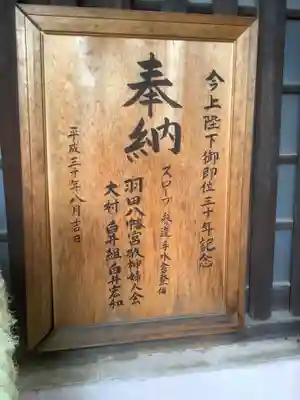 今上陛下御即位三十年記念
奉納
スロープ参道手水舎整備
羽田八幡宮敬神婦人会
大村白井組白井宏和
平成三十年八月吉日